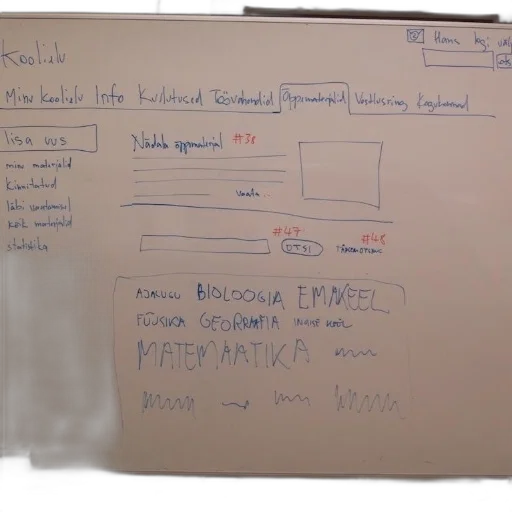 Hans logi välja
Koolielu
otsi
Minu Koolielu Info Kuulutused Töövahendid Õppematerjalid Vestlusring Kogukonnad
lisa uus
Nädala õppematerjal #38
minu materjalid
kinnitatud
läbi vaatamisel
kõik materjalid
statistika
vaata..
#47
#48
OTSI
AJALUGU BIOLOOGIA EMAKEEL
FÜÜSIKA GEOGRAAFIA INGLISE KEEL
MATEMAATIKA